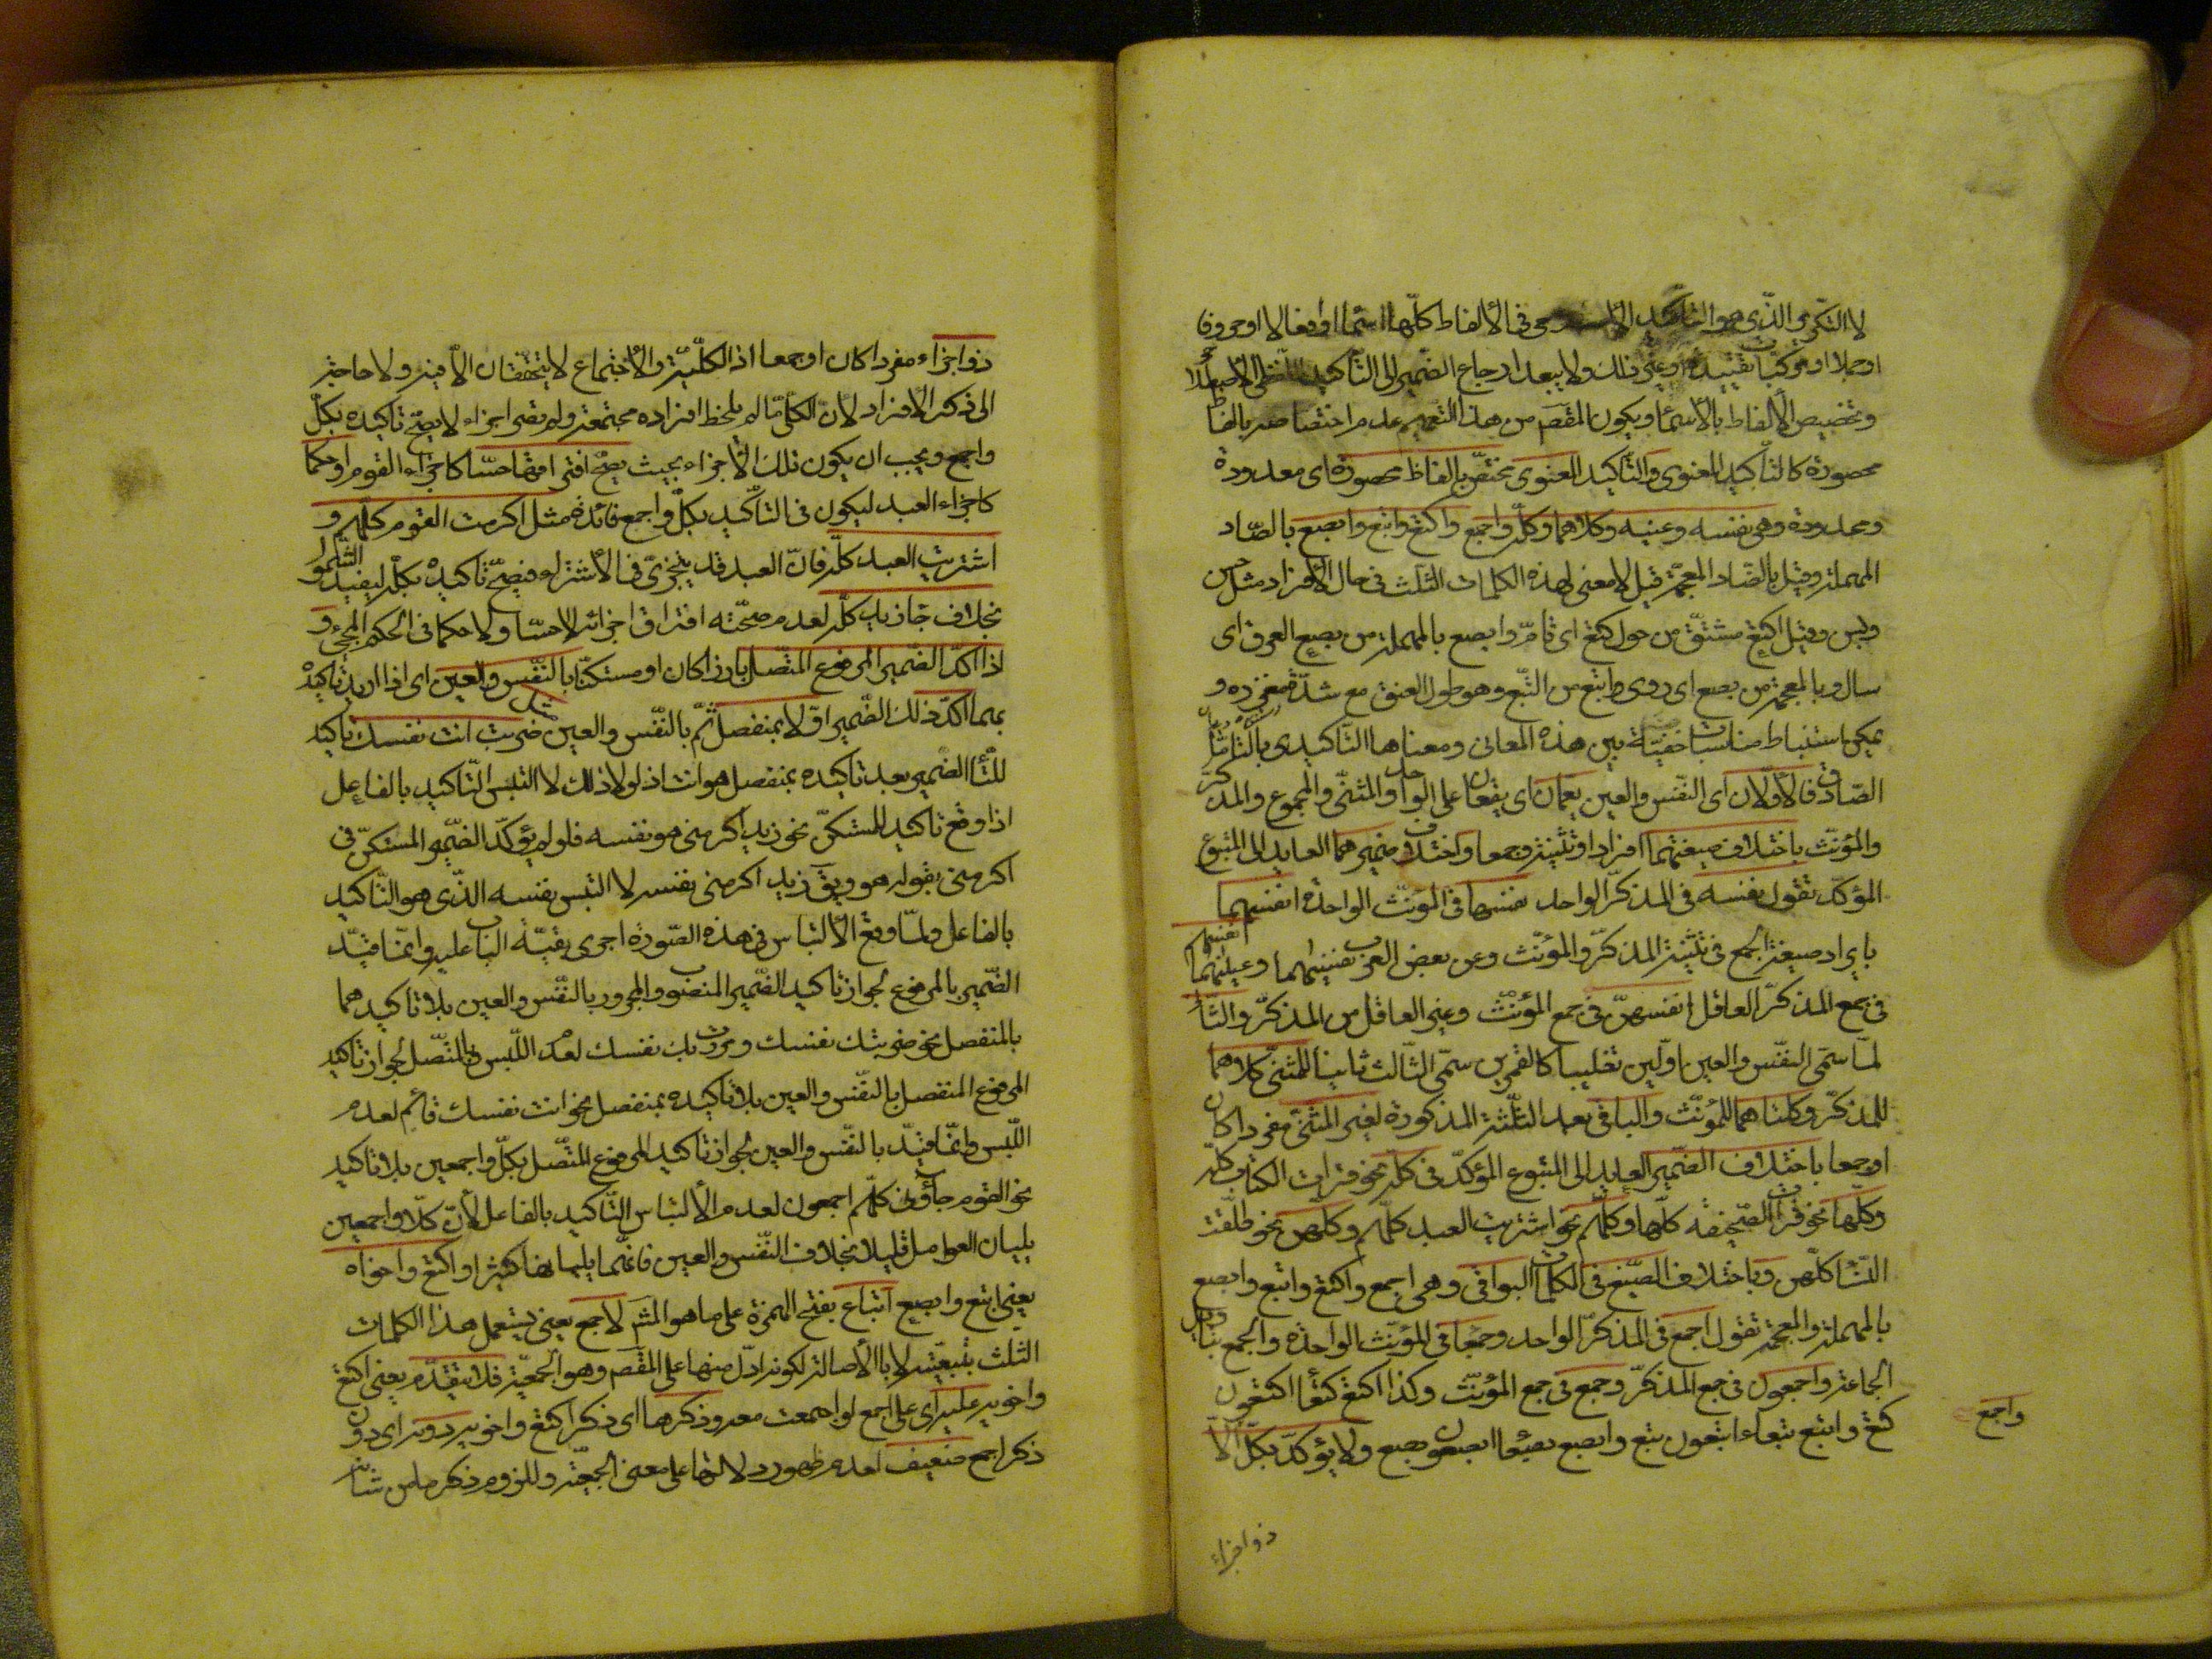 لا التكرير الذى هو التاكيد الا يجرى فى الألفاظ كلّها اسما او افعالا او حروفا
او جملا او مركّبات تقييديّة او غير ذلك ولا يبعد ارجاع الضّمير الى التّأكيد اللّفظى الاصطلا
وتخصيص الالفاظ بالاسماء ويكون المقصَ من هذا التعميم عدم اختصاصه بالفاظ
محصورة كالتأكيد المعنوى والتّأكيد المعنوى مختصّ بالفاظ محصورة اى معدودة
ومحدودة وهى نفسه وعينه وكلاهما وكلّه واجمع واكتع وابتع وابصع بالصّاد
المهملة وقيل بالضّاد المعجمة قيل لا معنى لهذه الكلمات الثلث فى حال الأفراد مثل حسن
وبسن وقيل اكتع مشتقّ من حول كتيع اى تامّ وابصع بالمهملة من بصع العرق اى
سال وبالمعجمة من بضع اى روى وابتع من البتع وهو طول العنق مع شدّة مغرزه و
يمكن استنباط مناسبات خفيّة بين هذه المعانى ومعناها التّأكيدى بالتّأمّل
الصّادق فالأوّلان اى النّفس والعين يعمّان اى يقعان على الواحد والمثنّى والمجموع والمذكّر
والمؤنّث باختلاف صيغتهما افرادا وتثنية وجمعا واختلاف ضميرهما العايد الى المتبوع
المؤكّد تقول نفسه فى المذكّر الواحد نفسها فى المؤنّث الواحدة انفسهما
بايراد صيغة الجمع فى تثنية المذكّر والمؤنّث وعن بعض العرب نفساهما وعيناهما انفسهم
فى جمع المذكّر العاقل انفسهنّ فى جمع المؤنّث وغير العاقل من المذكّر والثّا
لمّا سمّى النفس والعين اوّلين تغليبا كالقمرين سمّى الثّالث ثانيا للمثنّى كلاهما
للمذكّر وكلتاهما للمؤنّث والباقى بعد الثّلثة المذكورة لغير المثنّى مفردا كان
او جمعا باختلاف الضّمير العايد الى المتبوع المؤكّد فى كلّه نحو قرات الكتاب كلّه
وكلّها نحو قرات الصّحيفة كلّها وكلّهم نحو اشتريت العبد كلّهم وكلّهن نحو طلّقت
النّسا كلّهن وباختلاف الصّيغ فى الكلمات البواقى وهى اجمع واكتع وابتع وابصع
بالمهملة والمعجمة تقول اجمع فى المذكّر الواحد وجمعا فى المؤنّث الواحدة والجمع بتاويل
الجماعة واجمعون فى جمع المذكّر وجمع فى جمع المؤنّث وكذا اكتع كتعا اكتعون
كتع وابتع بتعاء ابتعون بتع وابصع بصعا ابصعون بصع ولا يؤكّد بكلّ الّا
واجمع
ذو اجزاء
ذو اجزاء مفردا كان او جمعا اذ الكلّيّة والأجتماع لا يتحقّقان الّا فيه ولا حاجة
الى ذكر الافراد لأنّ الكلّى ما لم يلحظ افراده مجتمعة ولم تصر اجزاء لا يصحّ تاكيده بكلّ
واجمع ويجب ان يكون تلك الأجزاء بحيث يصحّ افتراقها حسّا كاجزاء القوم او حكما
كاجزاء العبد ليكون فى التأكيد بكلّ واجمع فائدة مثل اكرمت القوم كلّهم و
اشتريت العبد كلّه فانّ العبد قد يتجزّى فى الأشتراء فيصحّ تاكيده بكلّ ليفيد الشّمول
بخلاف جاء زيد كلّه لعدم صحّة افتراق اجزائه لا حسّا ولا حكما فى الحكم المجىء و
اذا اكّد الضّمير المرفوع المتّصل بارزا كان او مستكنّا بالنّفس والعين اى اذا اريد تاكيده
بهما اكّد ذلك الضّمير اوّلا بمنفصل ثمّ بالنّفس والعين مثل ضربت انت نفسك تاكيد
للتّا الضّمير بعد تاكيده بمنفصل هو انت اذ لولا ذلك لا التبس التّاكيد بالفاعل
اذا وقع تاكيد للمستكنّ نحو زيد اكرمنى هو نفسه فلو لم يؤكّد الضّمير المستكنّ فى
اكرمنى بقوله هو ويقَ زيد اكرمنى نفسه لا التبس نفسه الذّى هو التّاكيد
بالفاعل ولمّا وقع الألتباس فى هذه الصّورة اجرى بقيّة الباب عليه وانّما قيّد
الضّمير بالمرفوع لجواز تاكيد الضّمير المنصوب والمجرور بالنّفس والعين بلا تاكيدهما
بالمنفصل نحو ضربتك نفسك ومررت بك نفسك لعدم اللّبس وبالمتّصل لجواز تاكيد
المرفوع المنفصل بالنّفس والعين بلا تاكيده بمنفصل نحو انت نفسك قائم لعدم
اللّبس وانّما قيّد بالنّفس والعين لجواز تاكيد المرفوع المتّصل بكلّ واجمعين بلا تاكيد
نحو القوم جاؤنى كلّهم اجمعون لعدم الألتباس التّاكيد بالفاعل لأنّ كلّا واجمعين
يليان العوامل قليلا بخلاف النّفس والعين فانّهما يليانها كثيرا واكتع واخواه
يعنى ابتع وابصع اتباع بفتح الهمزة على ما هو المشَ لاجمع يعنى يستعمل هذا الكلمات
الثلث بتبعيّته لا بالأصالة لكونه ادلّ منها على المقصَ وهو الجمعيّة فلا يتقدّم يعنى اكتع
واخويه عليه اى على اجمع لو اجتمعت معه وذكرها اى ذكر اكتع واخويه دونه اى دون
ذكر اجمع ضعيف لعدم ظهور دلالتها على معنى الجمعيّة وللزوم ذكر ما من شانه